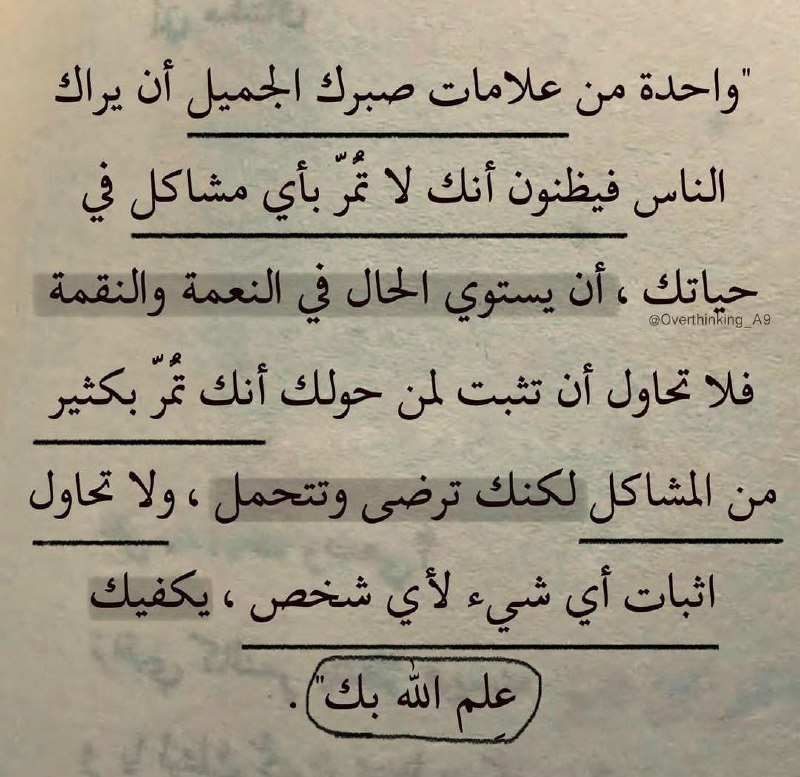 "واحدة من علامات صبرك الجميل أن يراك
الناس فيظنون أنك لا تمُرّ بأي مشاكل في
حياتك ، أن يستوي الحال في النعمة والنقمة
@Overthinking_A9
فلا تحاول أن تثبت لمن حولك أنك تمُرّ بكثير
من المشاكل لكنك ترضى وتتحمل ، ولا تحاول
اثبات أي شيء لأي شخص ، يكفيك
علِم الله بك" .